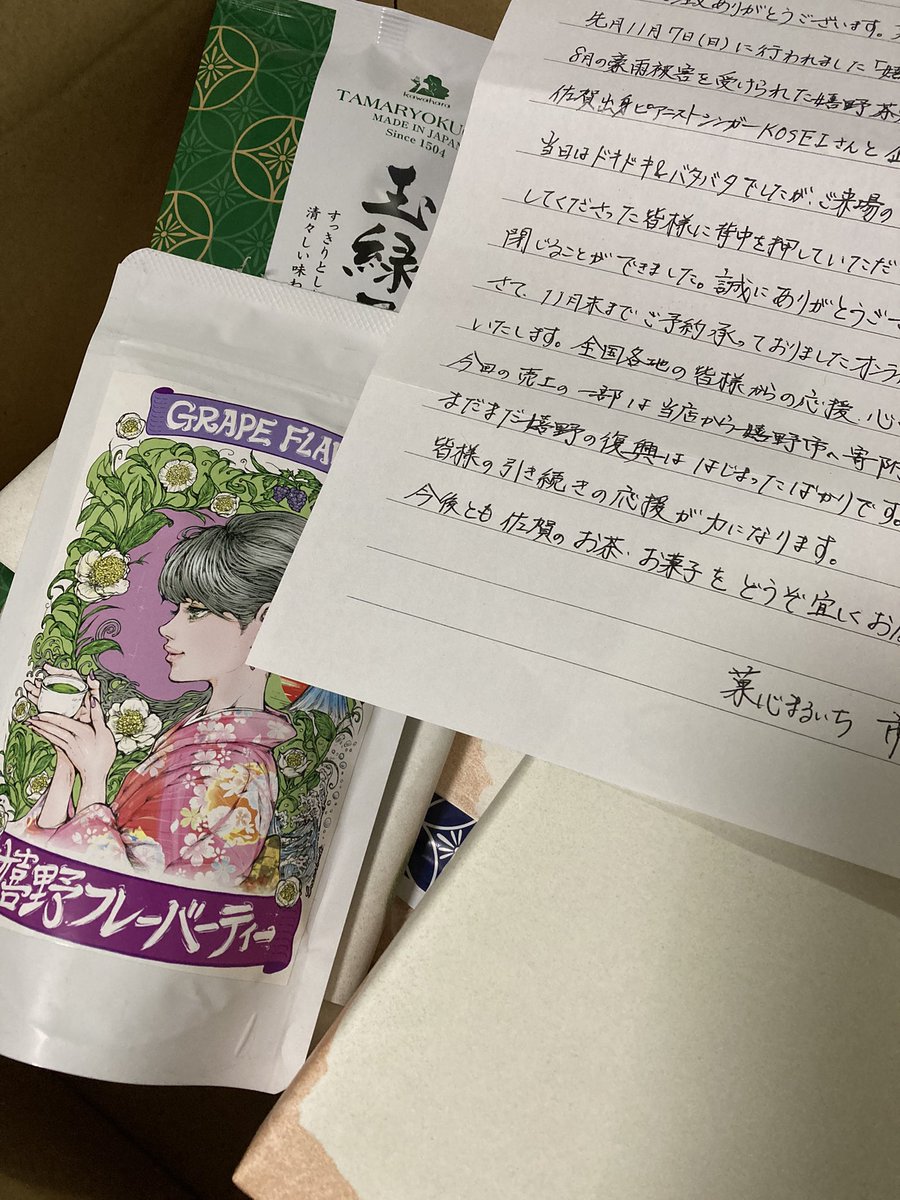 kawahara
TAMARYOKU
MADE IN JAPAN
Since 1504
玉緑
すっきりとし
清々しい味わ
GRAPE FLA
嬉野フレーバーティー
ありがとうございます。
先月11月7日(日)に行われました「嬉
8月の豪雨被害を受けられた嬉野茶
佐賀出身ピアニストシンガーKOSEIさんと企
当日はドキドキ&バタバタでしたが、ご来場の
してくださった皆様に背中を押していただ
閉じることができました。誠にありがとうござ
さて、11月末までご予約承っておりましたオンラ
いたします。全国各地の皆様からの応援、心
今回の売上の一部は当店から嬉野市へ寄附
まだまだ嬉野の復興ははじまったばかりです。
皆様の引き続きの応援が力になります。
今後とも佐賀のお茶、お菓子をどうぞ宜しくお
菓心まるいち 市